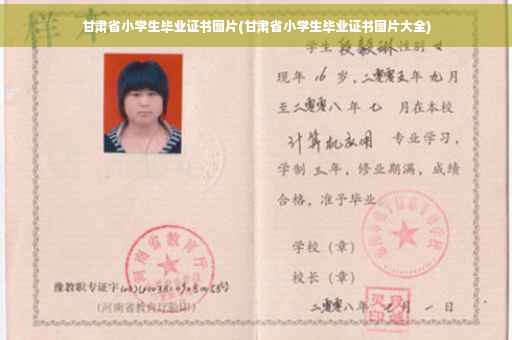 甘肃省小学生毕业证书图片(甘肃省小学生毕业证书图片大全)
样本
学生 段毅琳 性别 女
现年 16 岁,二零零五年 九月
至二零零八年 七 月在本校
计算机应用 专业学习,
学制 三 年,修业期满,成绩
合格,准予毕业
学校(章)
校长(章)
二零零八年 月 一 日
河南省教育厅
豫教职专证字
(河南省教育厅验印)